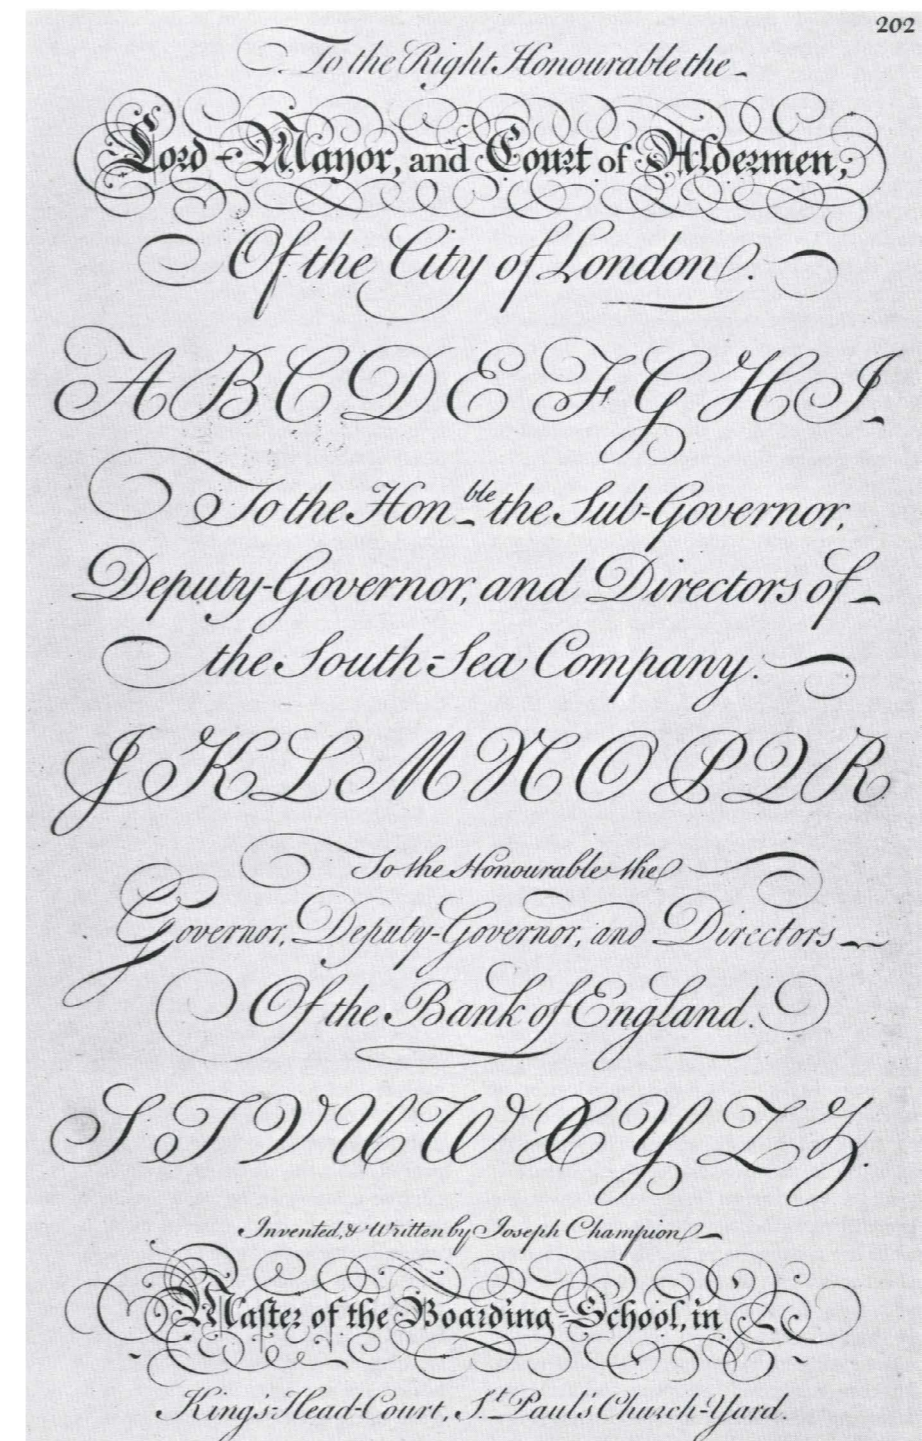 202
To the Right Honourable the
Lord-Mayor, and Court of Aldermen,
Of the City of London.
A B C D E F G H I
To the Hon.ble the Sub-Governor,
Deputy-Governor, and Directors of
the South-Sea Company.
J K L M N O P Q R
To the Honourable the
Governor, Deputy-Governor, and Directors
Of the Bank of England.
S T V U W X Y Z Z.
Invented, & Written by Joseph Champion
Master of the Boarding-School, in
King's-Head-Court, St. Paul's Church-Yard.